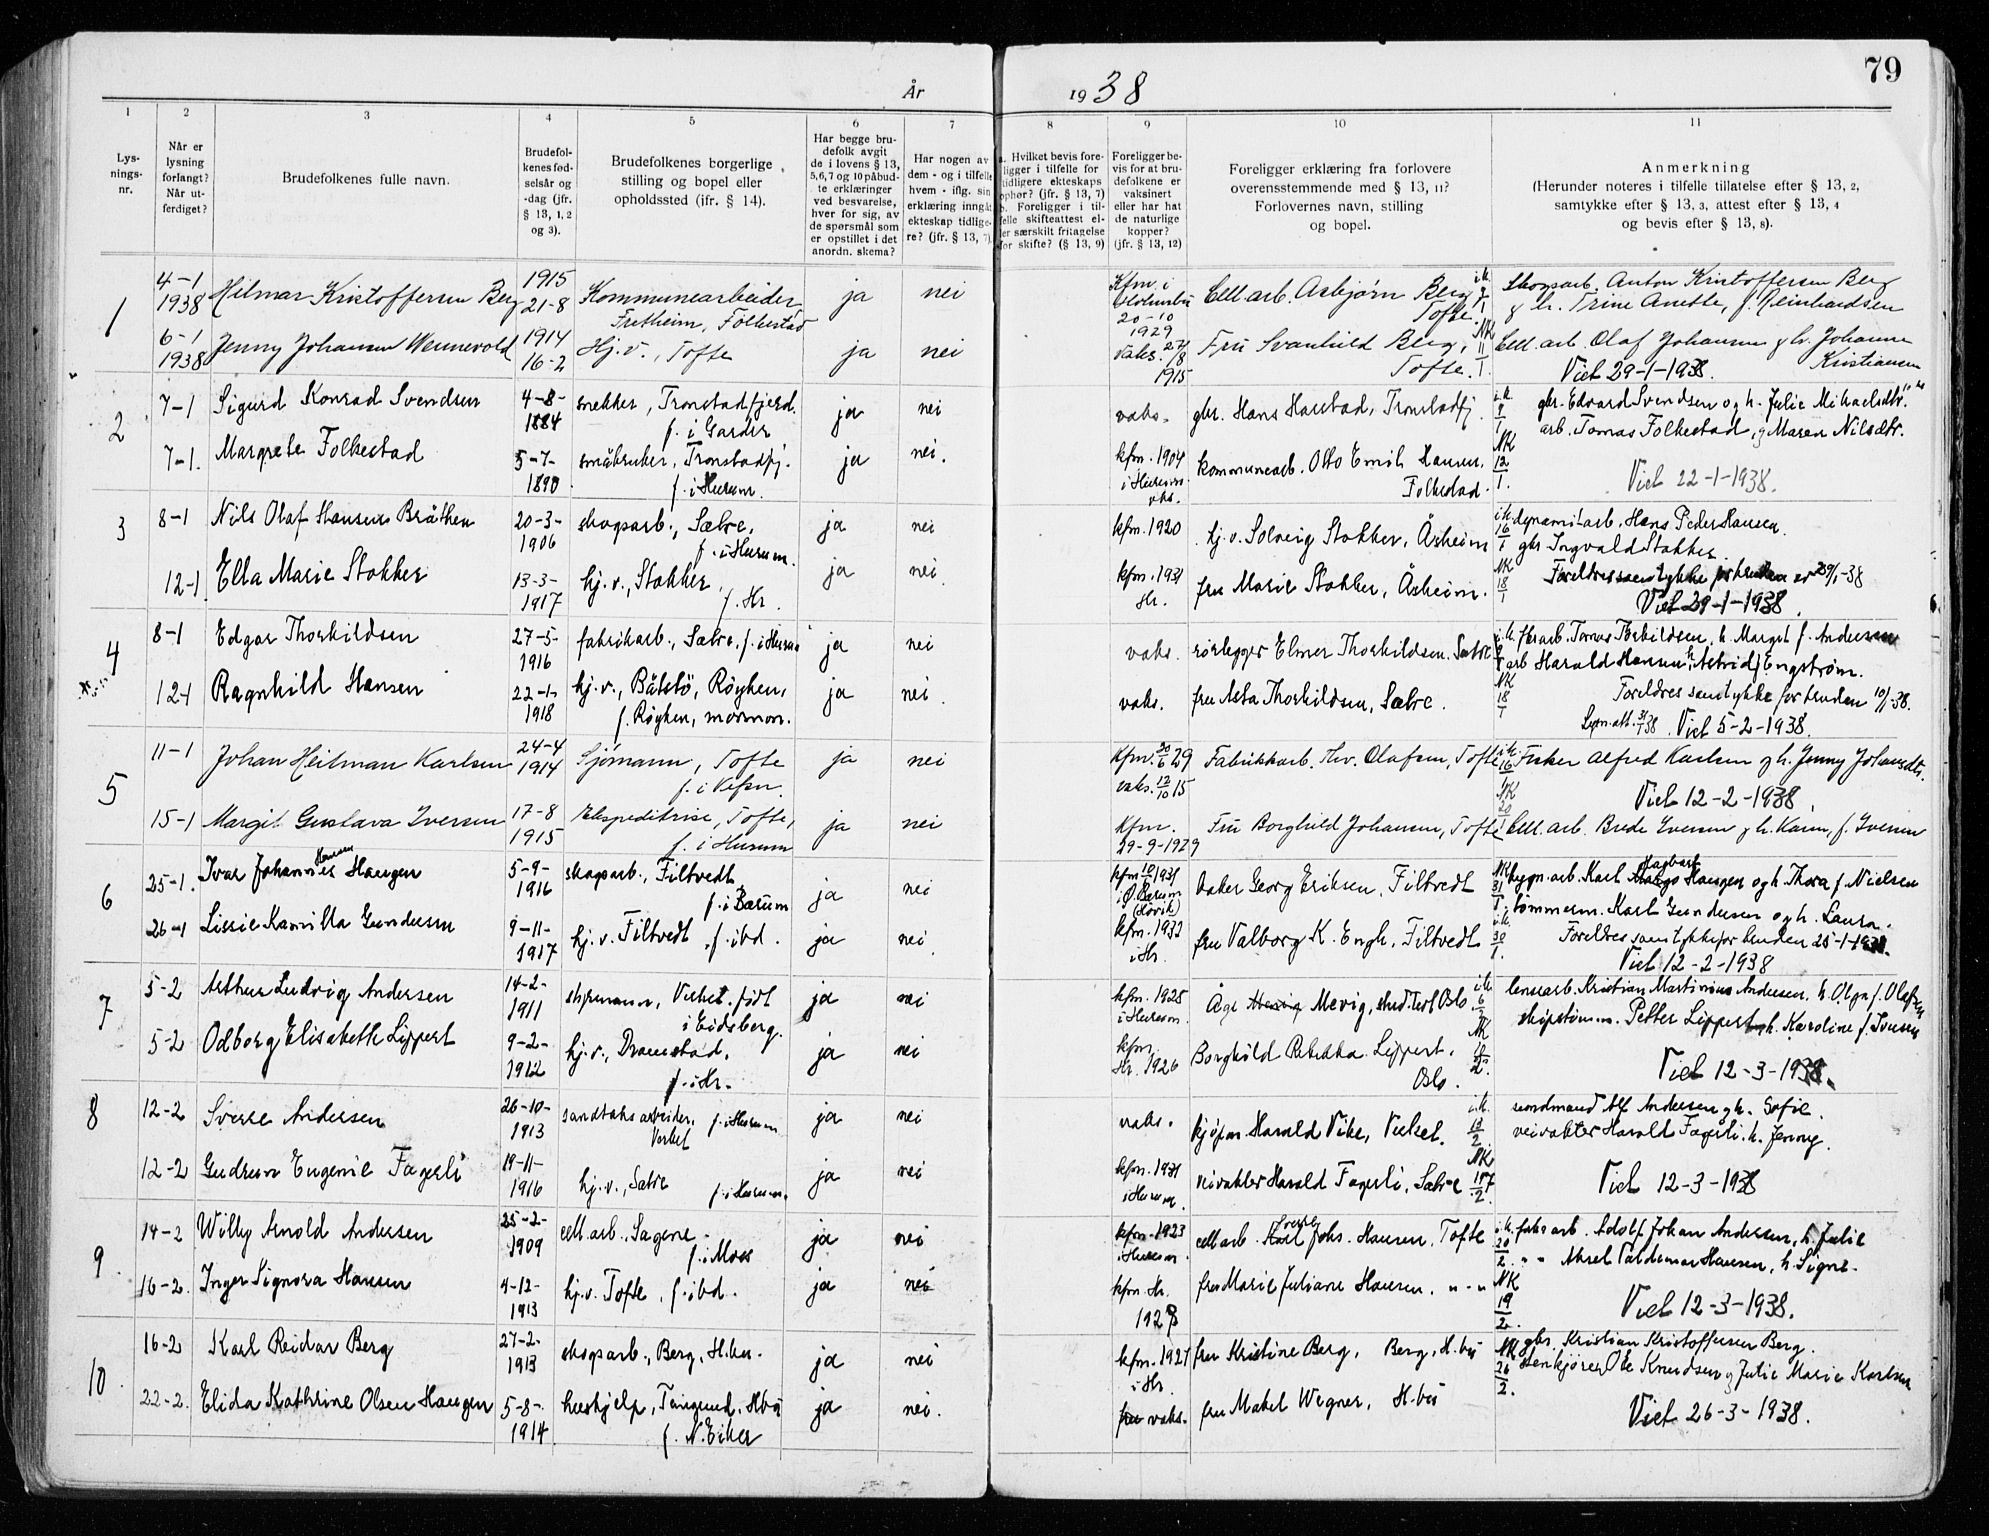 79
År 1938
1 2 3 4 5 6 7 8 9 10 11
Lys-
nings-
nr.
Når er
lysning
forlangt?
Når ut-
ferdiget?
Brudefolkenes fulle navn.
Brudefol-
kenes fød-
selsår og
-dag (jfr.
§ 13, 1, 2
og 3).
Brudefolkenes borgerlige
stilling og bopel eller
opholdssted (jfr. § 14).
Har begge bru-
defolk avgit
de i lovens § 13,
5,6,7 og 10 påbud-
te erklæringer
ved besvarelse,
hver for sig, av
de spørsmål som
er opstillet i det
anordn. skema?
Har nogen av
dem - og i tilfelle
hvem - iflg. sin
erklæring inngåt
ekteskap tidlige-
re? (jfr. § 13, 7)
a. Hvilket bevis fore-
ligger i tilfelle for
tidligere ekteskaps
ophør? (jfr. § 13, 7)
b. Foreligger i til-
felle skifteattest el-
ler særskilt fritagelse
for skifte? (§ 13, 9)
Foreligger be-
vis for at bru-
defolkene er
vaksinert
eller har hat
de naturlige
kopper?
(jfr. § 13, 12)
Foreligger erklæring fra forlovere
overensstemmende med § 13, 11?
Forlovernes navn, stilling
og bopel.
Anmerkning
(Herunder noteres i tilfelle tillatelse efter § 13, 2,
samtykke efter § 13, 3, attest efter § 13, 4
og bevis efter § 13, 8).
1
4-1 1938 Hilmar Kristoffersen Berg 1915 21-8 Kommunearbeider, Fretheim, Folkestad ja nei Kfm. i 20-10 1929 Cell. arb. Asbjørn Berg, Tofte. i.k. Skogsarb. Anton Kristoffersen Berg
g h. Trine Anette, f. Reinhardsen
6-1 1938 Jenny Johansen Wennevold 1914 16-2 Hj.v., Tofte ja nei Vaks. 1915 Fru Svanhild Berg, Tofte. NK 11/1 Cell. arb. Olaf Johansen g h. Johanne Kristiansen
Viet 29-1-1938.
2
7-1 Sigurd Konrad Svendsen 4-8-1884 snekker, Tronstadfjerd. f. i Garder ja nei vaks. gbr. Hans Harstad, Tronstadfj. i.k. gbr. Edvard Svendsen og h. Julie Mikaelsdtr.
7-1. Margrete Folkestad 5-7-1890 småbruker, Tronstadfj. f. i Hurum. ja nei. kfm. 1904 i Hurum. vks. kommunearb. Otto Emil Hansen, Folkestad. NK 12/1. arb. Tomas Folkestad, g Maren Nilsdtr.
Viet 22-1-1938.
3
8-1 Nils Olaf Hansen Bråthen 20-3-1906 skogsarb., Sætre, f. i Hurum. ja nei kfm. 1920 hj.v. Solveig Stokker, Åsheim i.k. 16/1 dynamitarb. Hans Peder Hansen
gbr Ingvald Stokker.
12-1 Ella Marie Stokker 13-3-1917 hj.v., Stokker, f. Hr. ja nei kfm. 1931 Hr. fru Marie Stokker, Åsheim. NK 18/1 Foreldres samtykke for bruden
Viet 29-1-1938.
4
8-1 Edgar Thorkildsen 27-5-1916 fabrikarb., Sætre. f. i Hurum ja nei vaks. rørlegger Elmer Thorkildsen. Sætre i.k. Tomas Torkildsen, h. Margit f. Andersen
arb Harald Hansen, h. Astrid f Engstrøm.
12-1 Ragnhild Hansen 22-1-1918 hj.v., Båtstø, Røyken, f. Røyken, mormon. ja nei. vaks. fru Asta Thorkildsen, Sætre. NK 18/1 Foreldres samtykke for bruden 10/1-38.
Lysn.att. 31/1 38. Viet 5-2-1938.
5
11-1 Johan Heilman Karlsen 24-4 1914 Sjømann, Tofte f. i Vefsn. ja nei Kfm. 30/6 29 vaks. 12/10 15 Fabrikkarb. Thv. Olafsen, Tofte i.k. 16/1 Fisker Alfred Karlsen g h. Jenny Johansdtr.
Viet 12-2-1938.
15-1 Margit Gustava Iversen 17-8 1915 Ekspeditrise, Tofte, f. i Hurum ja nei Kfm. 29-9-1929 Fru Borghild Johansen, Tofte NK 20/1 Cell. arb. Brede Iversen g h. Karen, f. Iversen
6
25-1. Ivar Johannes Hansen Haugen 5-9-1916 skogsarb., Filtvedt f. i Bærum ja nei kfm 1931 Ø. Bærum (Høvik) baker Georg Eriksen, Filtvedt NK 31/1 bygn. arb. Karl Hagbart Haugen og h. Thora f. Nielsen
26-1 Lissie Kamilla Gundersen 9-11-1917 hj.v. Filtvedt, f. ibd. ja nei. kfm. 1932 i Hr. fru Valborg K. Engh, Filtvedt i.k. 30/1. tømmerm. Karl Gundersen og h. Laura.
Foreldres samtykke for bruden 25-1-1938.
Viet 12-2-1938
7
5-2 Arthur Ludvig Andersen 14-2-1911 styrmann, Verket. født i Eidsberg. ja nei kfm. 1925 i Hurum. Åge Mevig, stud. Oslo i.k. 6/2 lensearb. Kristian Martinius Andersen, h. Olga f. Olafsen
5-2 Odborg Elisabeth Lippert 9-2-1912 hj.v., Dramstad, f. i Hr. ja nei kfm. Hr. 1926 Borghild Rebekka Lippert, Oslo. NK skipstømm. Petter Lippert og h. Karoline f. Iversen
Viet 12-3-1938.
8
12-2 Sverre Andersen 26-10-1913 sandtaksarbeider, Verket f. i Hurum ja nei vaks. kjøpm. Harald Vike, Verket. i.k. 13/2 Alf Andersen g h. Sofie.
12-2 Gudrun Eugenie Fagerli 19-11-1916 hj.v., Sætre f. i Hurum. ja nei kfm. 1931 i Hurum. veivokter Harald Fagerli, Sætre NK 17/2. veivokter Harald Fagerli. h. Jenny.
Viet 12-3-1938
9
14-2 Willy Arnold Andersen 25-2-1909 cell. arb., Sagene. f. i Moss ja nei kfm. 1923 i Hurum. cell arb. Sverre Johs. Hansen, Tofte i.k. 20/2. fabr. arb. Adolf Johan Andersen, h. Julie
16-2. Inger Signora Hansen 4-12-1913 hj.v. Tofte, f. ibd. ja nei kfm. Hr. 1928 fru Marie Juliane Hansen. " - " NK 19/2. " " Aksel Valdemar Hansen, h. Signe.
Viet 12-3-1938.
10
16-2 Karl Reidar Berg 27-2-1913 skogsarb., Berg, H.bu. ja nei kfm. 1927 i Hr. fru Kristine Berg, Berg, H.bu NK 26/2. gbr. Kristian Kristoffersen Berg.
22-2. Elida Kathrine Olsen Haugen 5-8-1914 hushjelp, Tangerud, Hbu f. N. Eiker ja nei. vaks. fru Makel Wegner, H.bu stenkjører Ole Knudsen g Julie Marie Karlsen
Viet 26-3-1938.